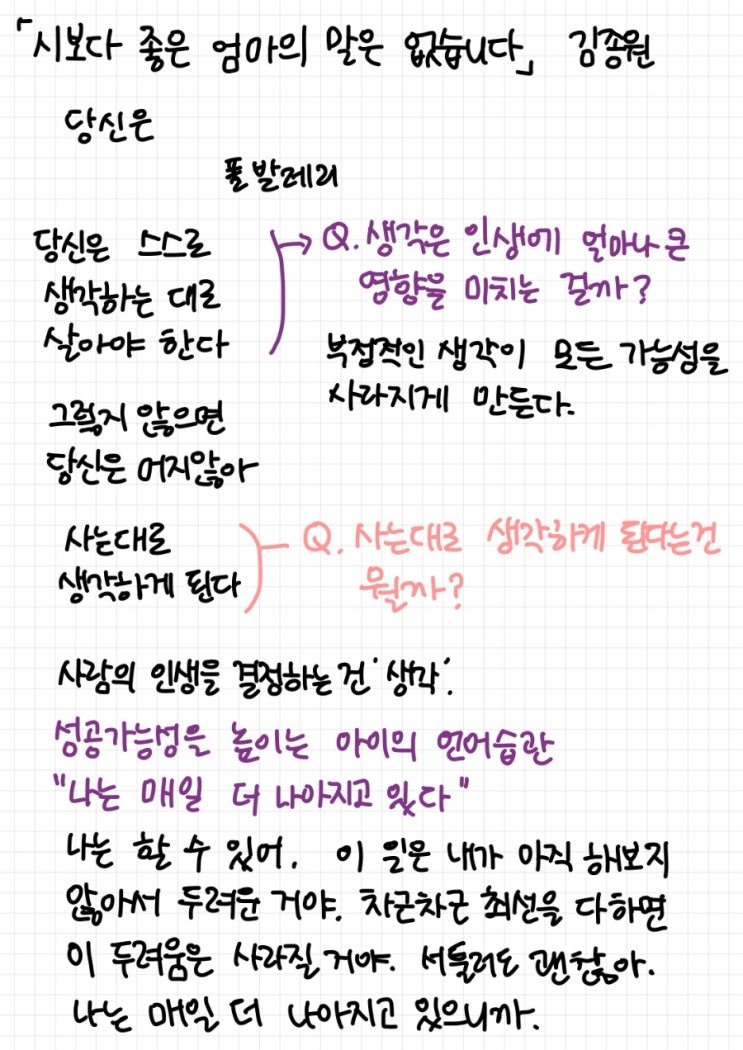 「시보다 좋은 엄마의 말은 없습니다」 김종원
당신은
폴 발레리
당신은 스스로
생각하는 대로
살아야 한다
Q. 생각은 인생에 얼마나 큰
영향을 미치는 걸까?
부정적인 생각이 모든 가능성을
사라지게 만든다.
그렇지 않으면
당신은 머지않아
사는대로
생각하게 된다
Q. 사는대로 생각하게 된다는건
뭘까?
사람의 인생을 결정하는 건 '생각'.
성공가능성을 높이는 아이의 언어습관
"나는 매일 더 나아지고 있다"
나는 할 수 있어. 이 일은 내가 아직 해보지
않아서 두려운 거야. 차근차근 최선을 다하면
이 두려움은 사라질 거야. 서툴러도 괜찮아.
나는 매일 더 나아지고 있으니까.